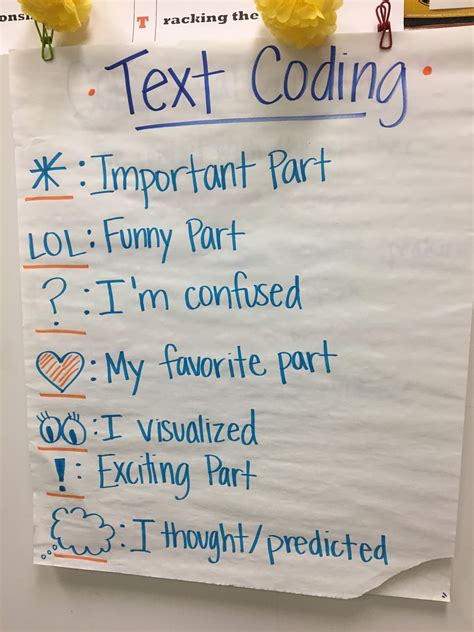 T racking the
Text Coding
* : Important Part
LOL: Funny Part
? : I'm confused
: My favorite part
: I visualized
! : Exciting Part
: I thought/predicted